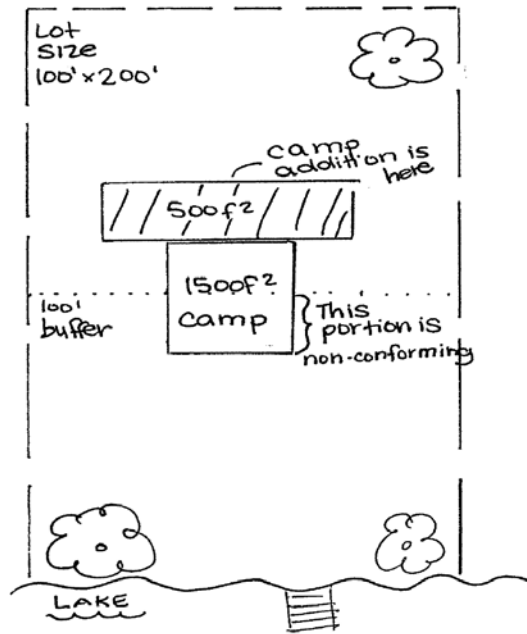 Lot
Size
100' x 200'
camp
addition is
here
500f²
1500f²
camp
100'
buffer
This
portion is
non-conforming
LAKE